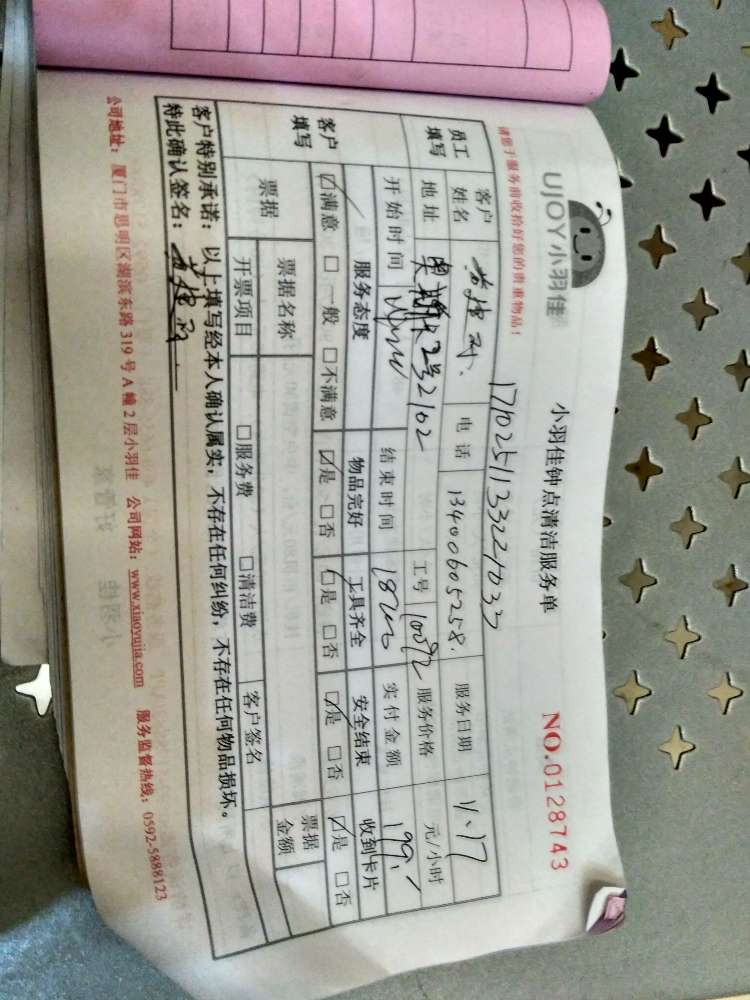 UJOY小羽佳
小羽佳钟点清洁服务单
NO.0128743
请您于服务前收拾好您的贵重物品!
员工填写
客户姓名
电话 13400605258.
服务日期 11.17
地址 2号2102
工号 10092
服务价格 元/小时
开始时间
结束时间
实付金额 199.
客户填写
服务态度 物品完好 工具齐全 安全结束 收到卡片
☑满意 □一般 □不满意 ☑是 □否 ☑是 □否 ☑是 □否 ☑是 □否
票据 票据名称 票据金额
开票项目 □服务费 □清洁费 客户签名
客户特别承诺:以上填写经本人确认属实,不存在任何纠纷,不存在任何物品损坏。
特此确认签名:
公司地址:厦门市思明区湖滨东路319号A幢2层小羽佳 公司网站:www.xiaoyujia.com 服务监督热线:0592-5888123